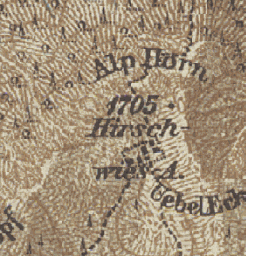 Alp Horn
1705
Hirsch-
wies-A.
Uebel Eck
pf